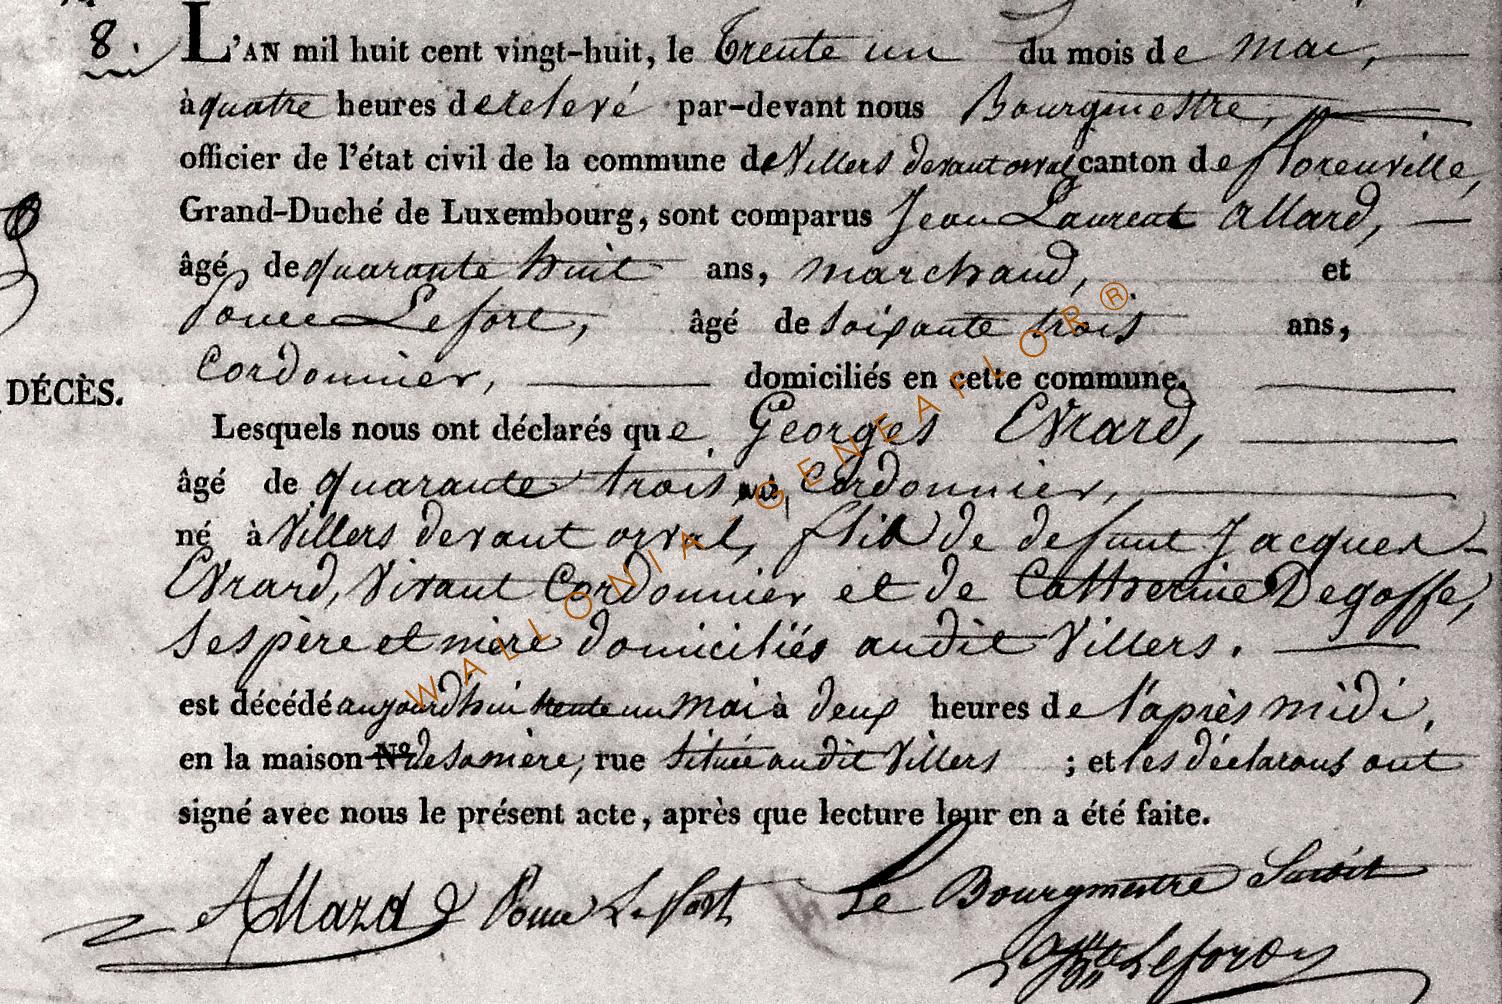 8. L'AN mil huit cent vingt-huit, le trente un du mois de mai,
à quatre heures de relevé par-devant nous Bourgmestre,
officier de l'état civil de la commune de Villers devant orval canton de florenville,
Grand-Duché de Luxembourg, sont comparus Jean Laurent allard,
âgé de quarante huit ans, marchand, et
Ponce Lefort, âgé de soixante trois ans,
Cordonnier, domiciliés en cette commune.
DÉCÈS.
Lesquels nous ont déclarés que Georges Evrard,
âgé de quarante trois Cordonnier,
né à Villers devant orval, fils de defunt Jacques
Evrard, vivant Cordonnier et de Catherine Degoffe,
ses père et mère domiciliés audit Villers.
est décédé aujourd'hui trente un mai à deux heures de l'après midi,
en la maison N° de sa mère, rue située audit Villers ; et les déclarans ont
signé avec nous le présent acte, après que lecture leur en a été faite.
Allard Ponce Lefort Le Bourgmestre
WALLONIA - GENEAFLOR®